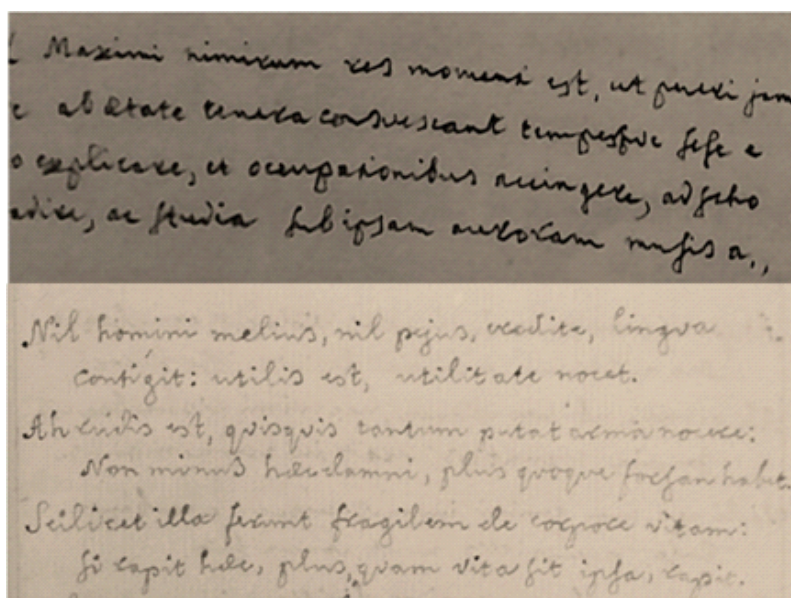 Maximi nimirum res momenti est, ut pueri jam
ab ætate tenera consuescant tempestive sese e
explicare, et occupationibus accingere, ad scho
adire, ac studia sub ipsam auroram musis a,,
Nil homini melius, nil pejus, credite, lingva
contigit: utilis est, utilitate nocet.
Ah rudis est, quisquis tantum putat arma nocere:
Non minus hæc damni, plus quoque forsan habet.
Scilicet illa ferunt fragilem de corpore vitam:
si rapit hæc, plus, quam vita sit ipsa, rapit.